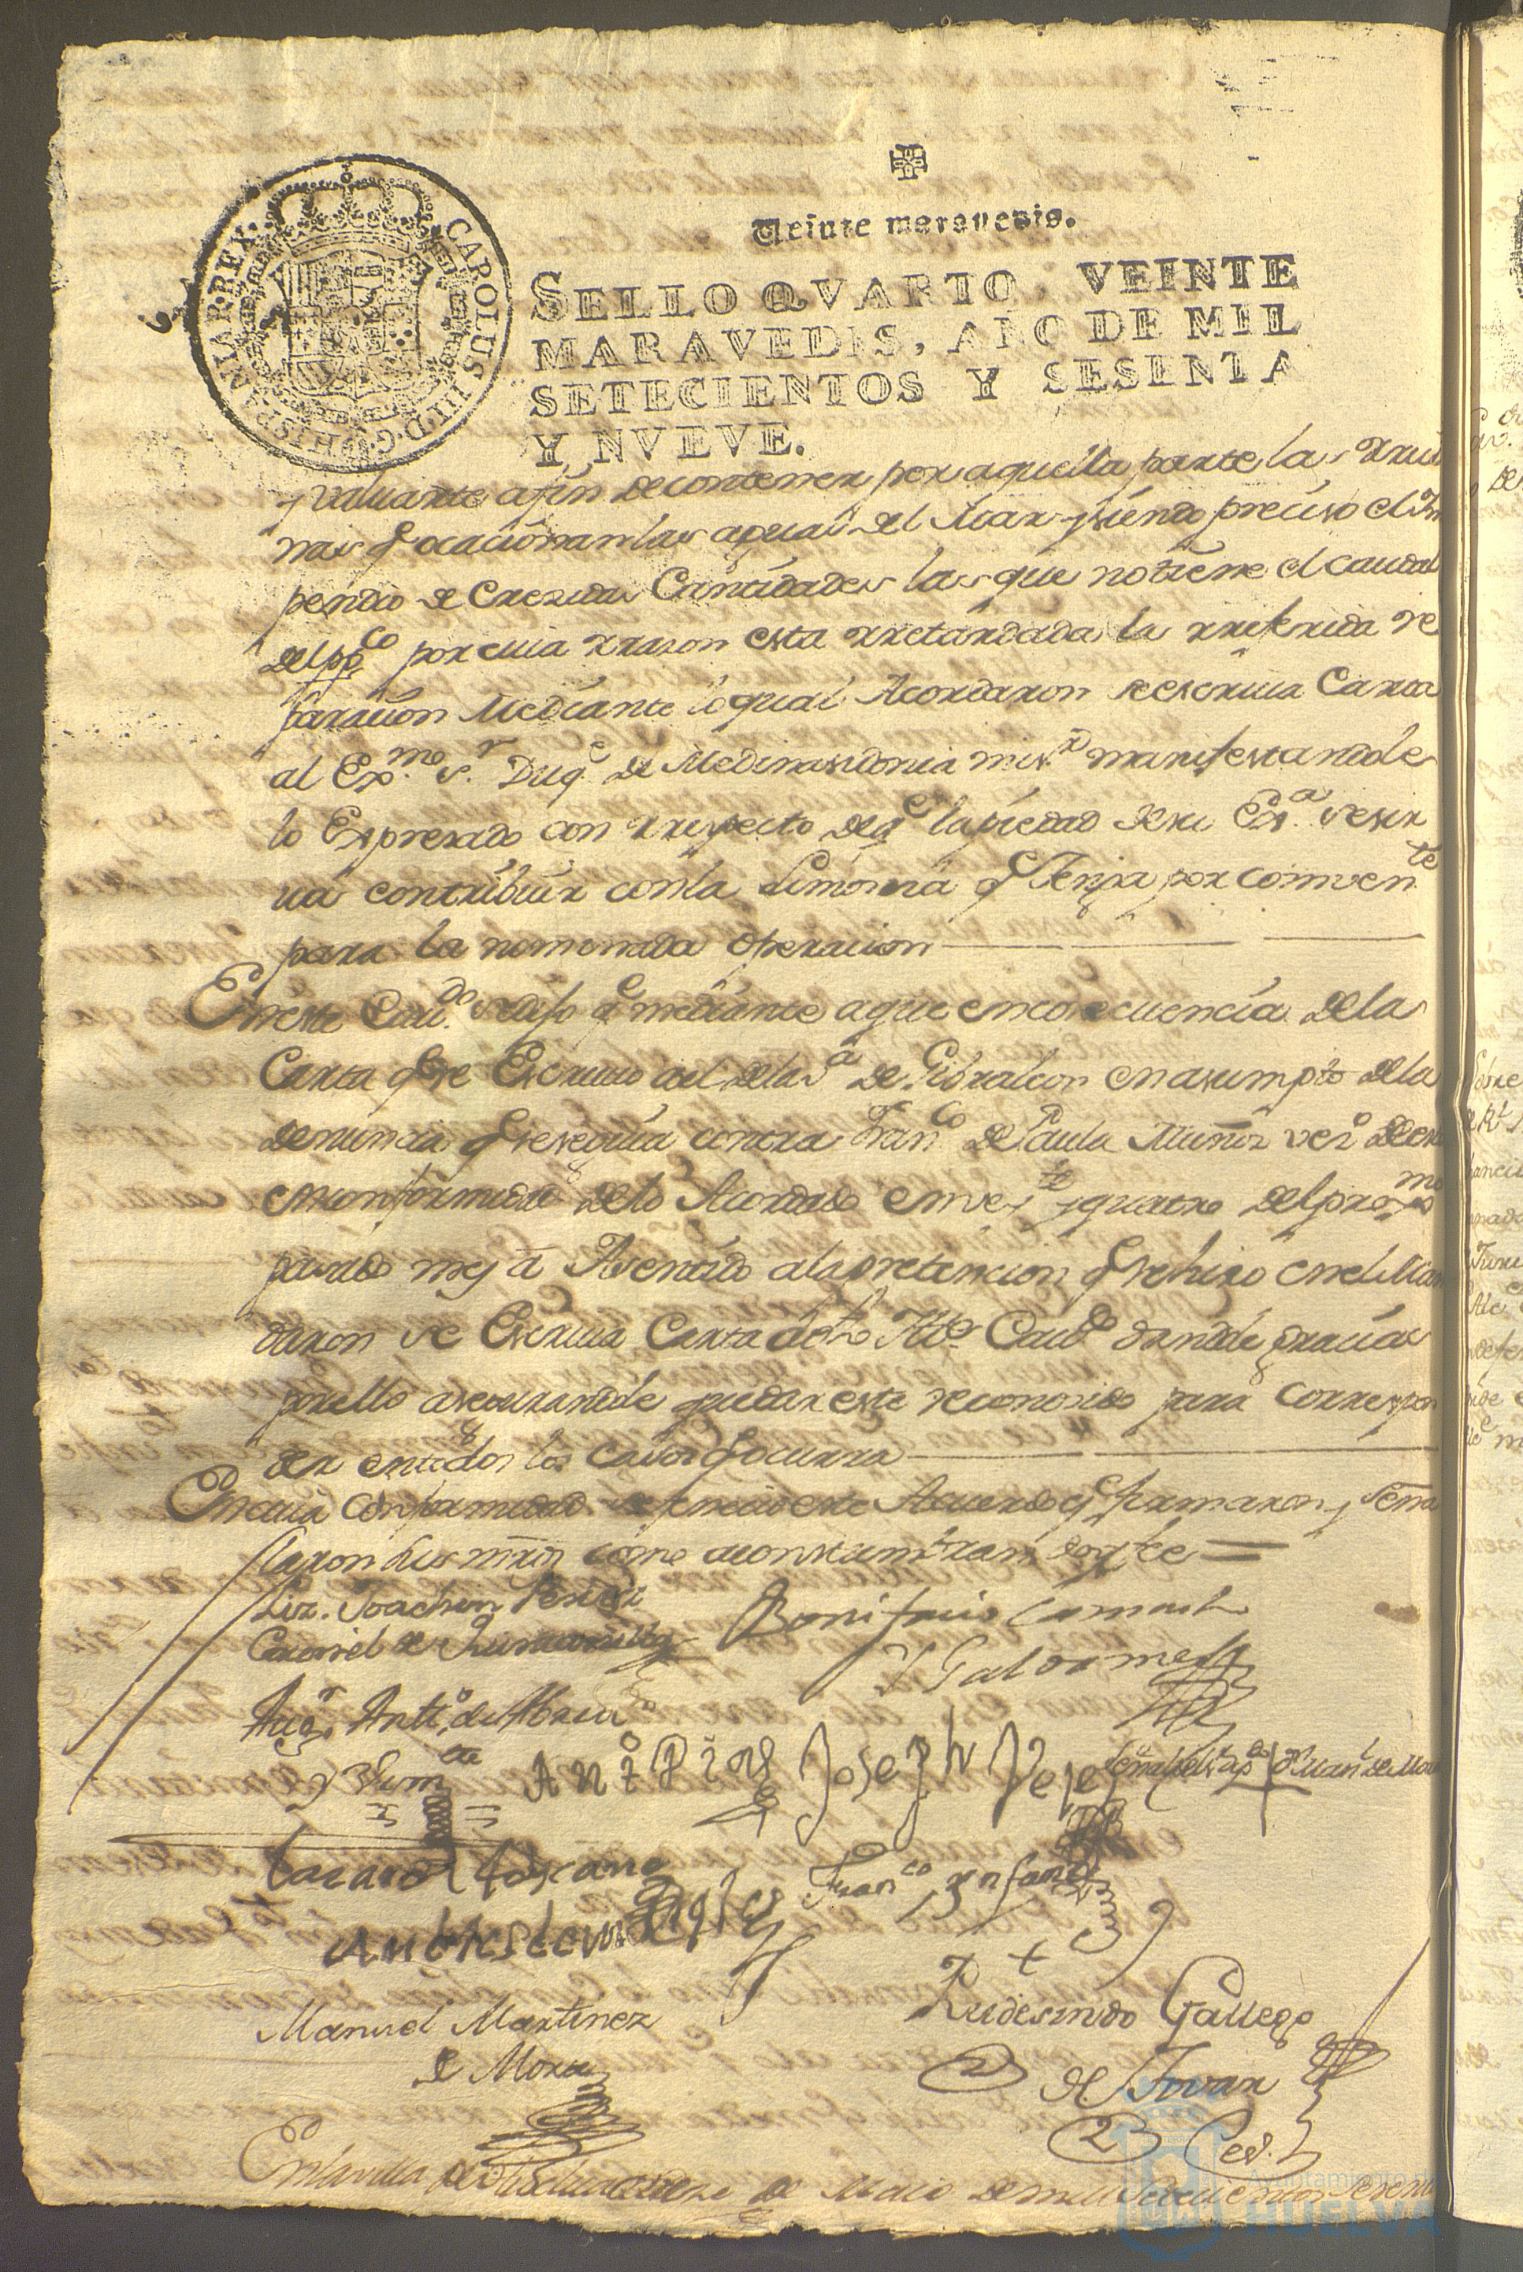 CAROLUS III D. G. HISPANIAR. REX
Veinte maravedis.
SELLO QVARTO, VEINTE
MARAVEDIS, AÑO DE MIL
SETECIENTOS Y SESENTA
Y NVEVE.
y valuarte afin de contener por aquella parte las rrui
nas q ocacionan las aguas del Mar y siendo preciso el
pendio de Crezidas Cantidades las que no tiene el caudal
del pp.co por cuia rrazon esta rretardada la rreferida re
paracion Mediante lo qual Acordaron se escriua Carta
al Ex.mo s.r Duq.e de Medinasidonia mi s.r manifestandole
lo Expresado con rrespecto de q.e la piedad de su Ex.a se sir
ua contribuir con la Limosna q.e Tenga por comven.te
para la nominada operacion
En este Cau.do se dijo q.e mediante a que en consecuencia de la
Carta q.e se Escriuio al de la V.a de Gibraleon en asumpto de la
denuncia q.e se seguia contra Fran.co de Paula Muñoz vez.o de esta
en conformidad de lo Acordado en ve 
te y quatro del pro
mo
pasado mes a Asentido a la pretencion q.e se hizo en el
daron se Escriua Carta a dho Yltte. Cau.do dandole gracias
por ello asegurandole quedar este reconosido para Correspon
der en todos los casos q ocurra
En cuia Conformidad se fenecio este Acuerdo q.e firmaron y seña
laron sus mrds como acostumbran doy fee =
Liz. Joachin Perez
Coronel de
Bonifacio
y Galdames
Aug.n Antt.o de Abreu
Ant.o Joseph
señal del cap.do + D Man.l de
Lazaro Toscano
Fran.co Ynfante
Manuel Martinez
de Mora
Rudesindo Gallego
de Tovar
Es.no
En la villa de Huelva en de Maio de mill setecientos sesenta
Ayuntamiento de
HUELVA